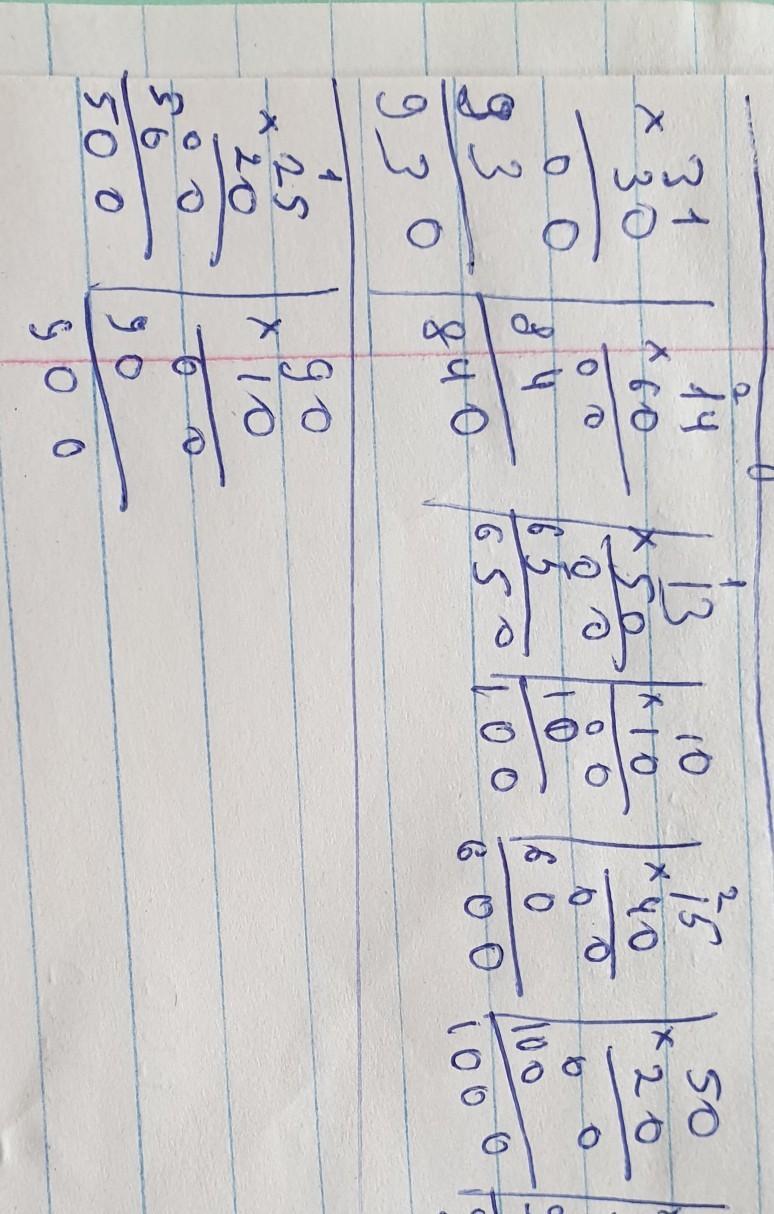 31
× 30
00
93
930
2
14
× 60
00
84
840
1
13
× 50
00
65
650
10
× 10
00
10
100
2
15
× 40
00
60
600
50
× 20
00
100
1000
1
25
× 20
00
50
500
90
× 10
00
90
900